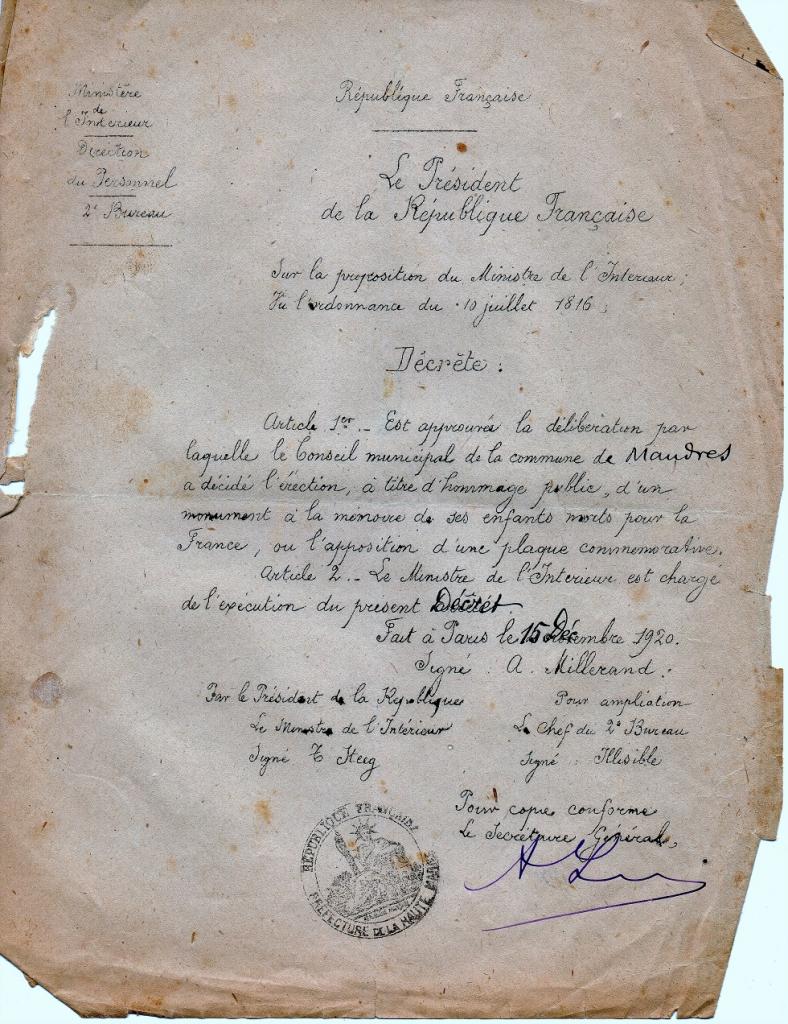 Ministère
de
l'Intérieur
Direction
du Personnel
2e Bureau
République Française
Le Président
de la République Française
Sur la proposition du Ministre de l'Intérieur;
Vu l'ordonnance du 10 juillet 1816;
Décrète :
Article 1er. - Est approuvée la délibération par
laquelle le Conseil municipal de la commune de Mandres
a décidé l'érection, à titre d'hommage public, d'un
monument à la mémoire de ses enfants morts pour la
France, ou l'apposition d'une plaque commémorative.
Article 2. - Le Ministre de l'Intérieur est chargé
de l'exécution du présent Décrèt
Fait à Paris le 15 Décembre 1920.
Signé : A. Millerand.
Par le Président de la République
Le Ministre de l'Intérieur
Signé T Steeg
Pour ampliation
Le Chef du 2e Bureau
Signé : Illisible
Pour copie conforme
Le Secrétaire Général,
RÉPUBLIQUE FRANÇAISE
PRÉFECTURE DE LA HAUTE MARNE